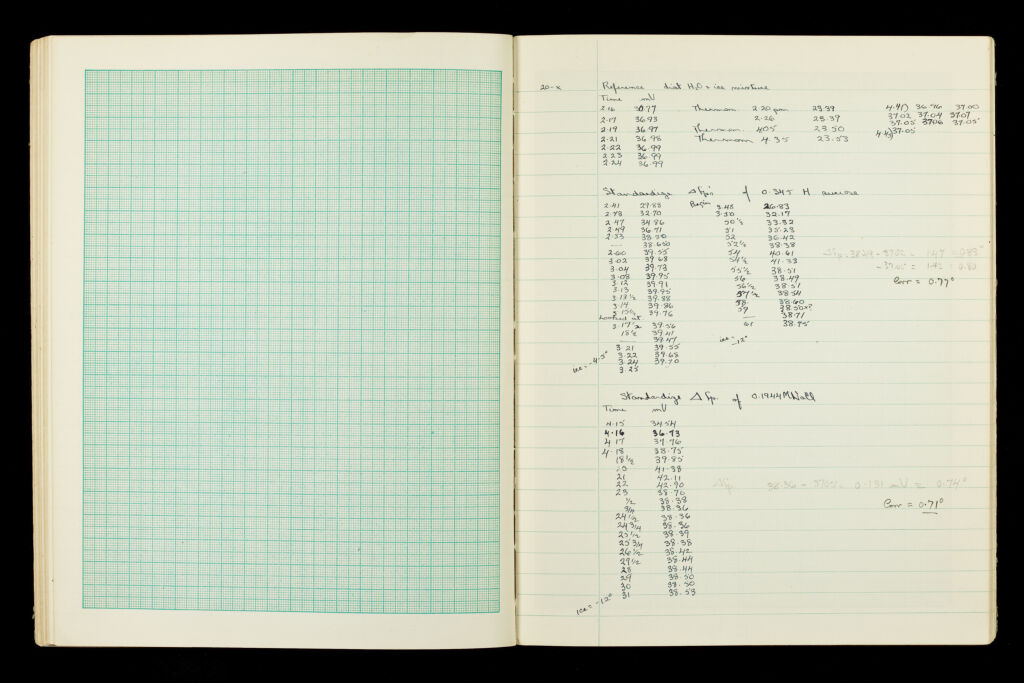 20-x Reference dist. H2O + ice mixture
Time mV
2.16 36.77 Thermom 2.20 pm 23.39 4.41) 36.96 37.00
2.17 36.93 2.26 23.39 37.02 37.04 37.07
2.19 36.97 Thermom. 4.05 23.50 37.05 37.06 37.05
2.21 36.98 Thermom 4.35 23.53 37.05
2.22 36.99
2.23 36.99
2.24 36.99
Standardize Δ f.p. of 0.345 M
2.41 29.88 Begin 3.48 26.83
2.43 32.70 3.50 32.17
2.47 34.86 50½ 33.32
2.49 36.71 51 35.23
2.53 38.50 52 36.42
— 38.650 52½ 38.38
2.60 39.55 54 40.61
3.02 39.68 54½ 41.33
3.04 39.73 55½ 38.51
3.08 39.95 56 38.49
3.12 39.91 56½ 38.51 Corr = 0.77°
3.13 39.95 57½ 38.54
3.13½ 39.88 58 38.60
3.14 39.86 59
3.15½ 39.76 — 38.71
Looked at
3.17½ 39.56 61 38.95
18½ 39.41
— 39.47 ice = -12°
3.21 39.55
3.22 39.68
3.24 39.70
3.25
ice = -4.5°
Standardize Δ f.p. of 0.1944 M NaCl
Time mV
4.15 34.54
4.16 36.73
4.17 37.76
4.18 38.75
18½ 39.85
41.38
21 42.11
22 42.90
23 38.70 Δf.p. 38.36 - 37.05 = 0.131 mV = 0.74°
½ 38.38
¾ 38.36 Corr = 0.71°
24½ 38.36
24¾ 38.36
25½ 38.39
25¾ 38.38
26½ 38.42
27½ 38.44
28 38.44
29 38.50
30 38.50
31 38.53
ice = -12°